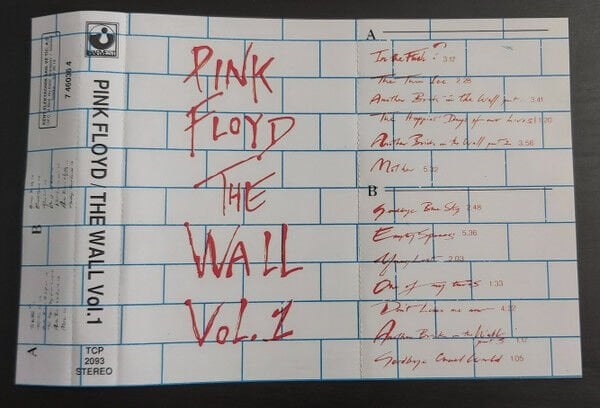 7 46036 4
B
A
HARVEST
PINK FLOYD / THE WALL Vol.1
TCP
2093
STEREO
PINK
FLOYD
THE
WALL
VOL.1
A
In the Flesh?
The Thin Ice
Another Brick in the Wall part 3.41
The Happiest Days of our Lives 1:20
Another Brick in the Wall part 2 3.56
Mother 5.32
B
Goodbye Blue Sky 2:48
Empty Spaces 5.36
Young Lust 2:03
One of my turns 1:33
Don't Leave me now 4:32
Another Brick in the Wall part 3
Goodbye Cruel World 1:05